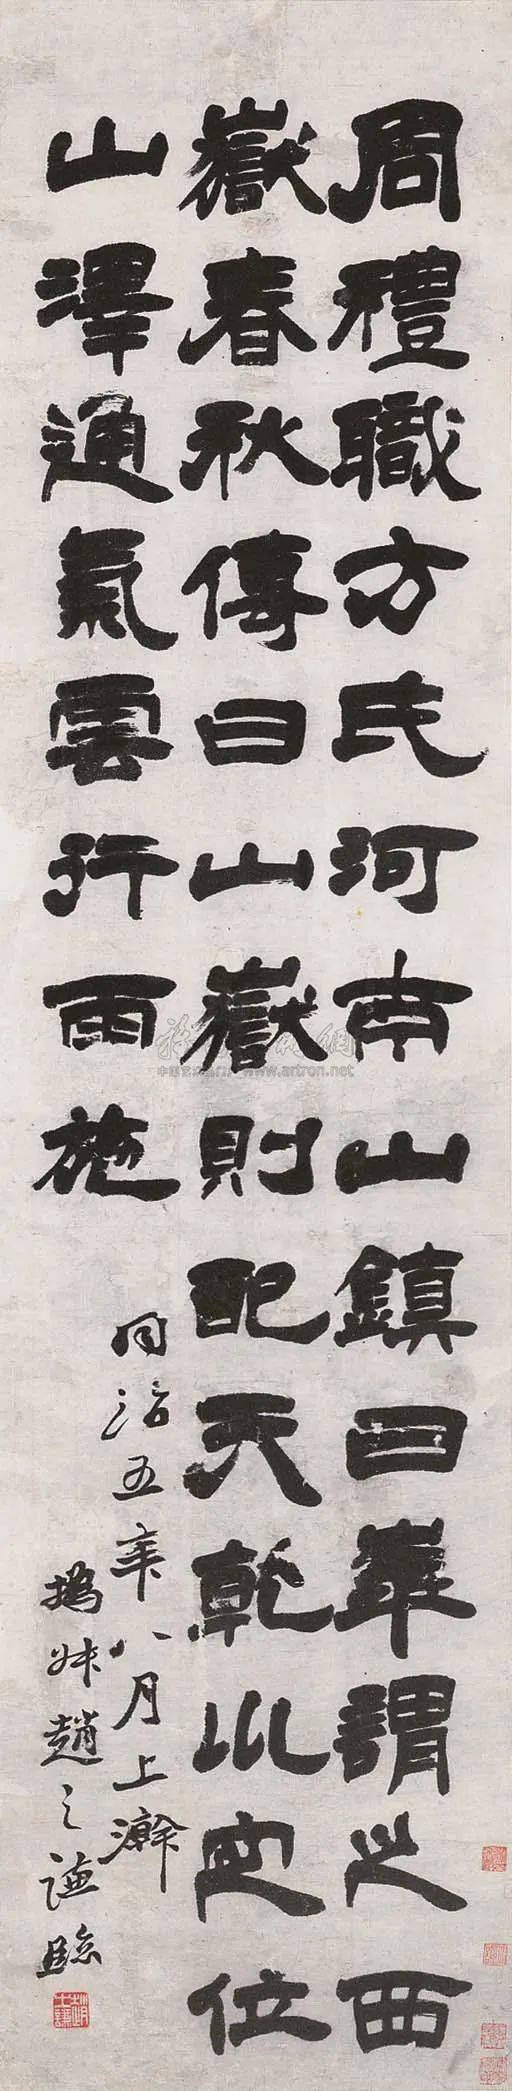 周禮職方氏河南山鎮曰華謂之西
嶽春秋傳曰山嶽則配天乾㠯定位
山澤通氣雲行雨施
同治五年八月上澣
撝叔趙之謙臨
www.artron.net